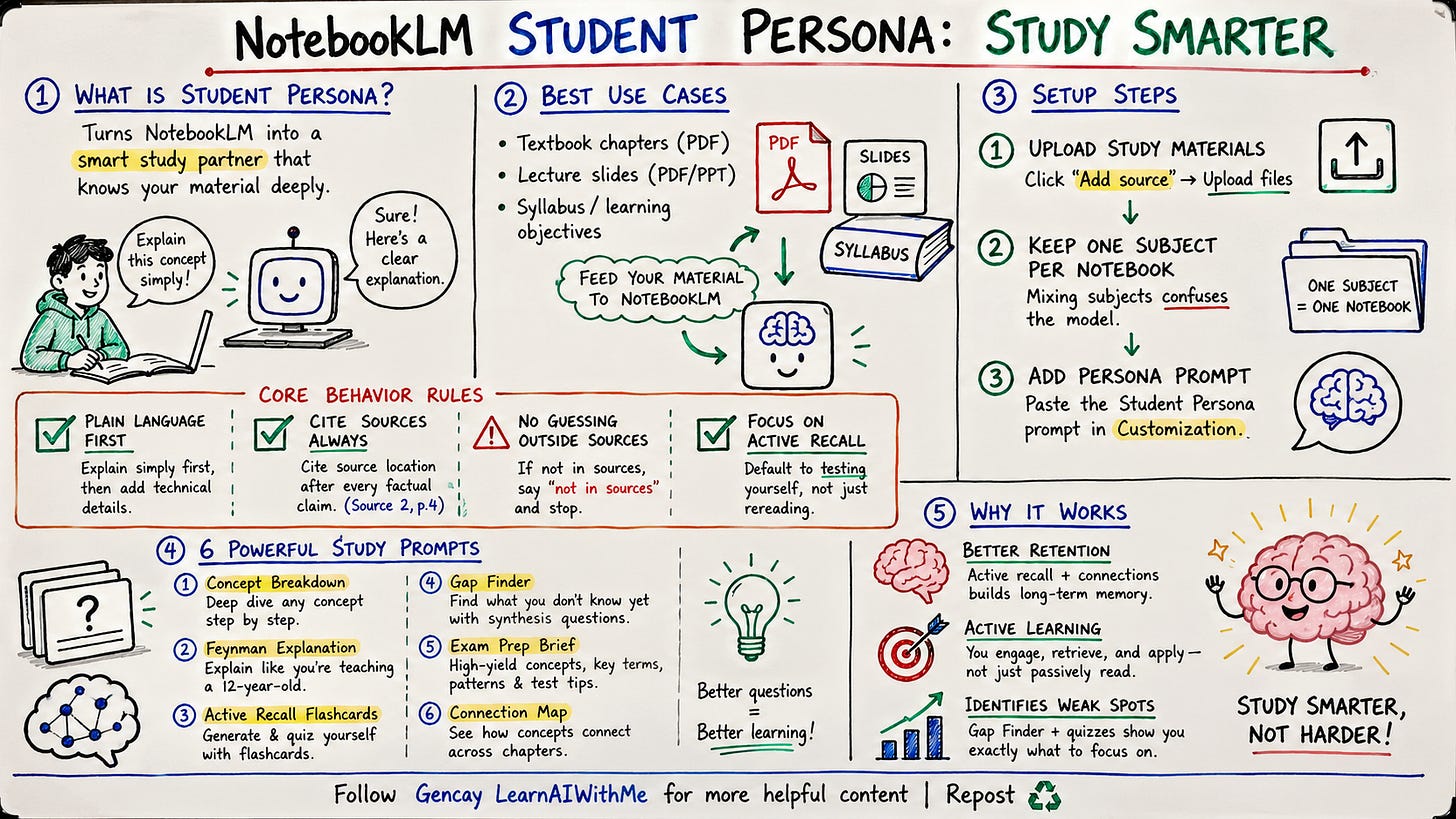 NotebookLM STUDENT PERSONA: STUDY SMARTER
1 WHAT IS STUDENT PERSONA?
Turns NotebookLM into a
smart study partner that
knows your material deeply.
Explain
this concept
simply!
Sure!
Here's a
clear
explanation.
2 BEST USE CASES
• Textbook chapters (PDF)
• Lecture slides (PDF/PPT)
• Syllabus / learning
objectives
PDF
SLIDES
SYLLABUS
FEED YOUR MATERIAL
TO NOTEBOOKLM
3 SETUP STEPS
1 UPLOAD STUDY MATERIALS
Click "Add source" → Upload files
2 KEEP ONE SUBJECT
PER NOTEBOOK
Mixing subjects confuses
the model.
ONE SUBJECT
= ONE NOTEBOOK
3 ADD PERSONA PROMPT
Paste the Student Persona
prompt in Customization.
CORE BEHAVIOR RULES
PLAIN LANGUAGE
FIRST
Explain simply first,
then add technical
details.
CITE SOURCES
ALWAYS
Cite source location
after every factual
claim. (Source 2, p.4)
NO GUESSING
OUTSIDE SOURCES
If not in sources,
say "not in sources"
and stop.
FOCUS ON
ACTIVE RECALL
Default to testing
yourself, not just
rereading.
4 6 POWERFUL STUDY PROMPTS
?
1 Concept Breakdown
Deep dive any concept
step by step.
2 Feynman Explanation
Explain like you're teaching
a 12-year-old.
3 Active Recall Flashcards
Generate & quiz yourself
with flashcards.
4 Gap Finder
Find what you don't know yet
with synthesis questions.
5 Exam Prep Brief
High-yield concepts, key terms,
patterns & test tips.
6 Connection Map
See how concepts connect
across chapters.
Better questions
=
Better learning!
5 WHY IT WORKS
BETTER RETENTION
Active recall + connections
builds long-term memory.
ACTIVE LEARNING
You engage, retrieve, and apply—
not just passively read.
IDENTIFIES WEAK SPOTS
Gap Finder + quizzes show you
exactly what to focus on.
STUDY SMARTER,
NOT HARDER!
Follow Gencay LearnAIWithMe for more helpful content | Repost